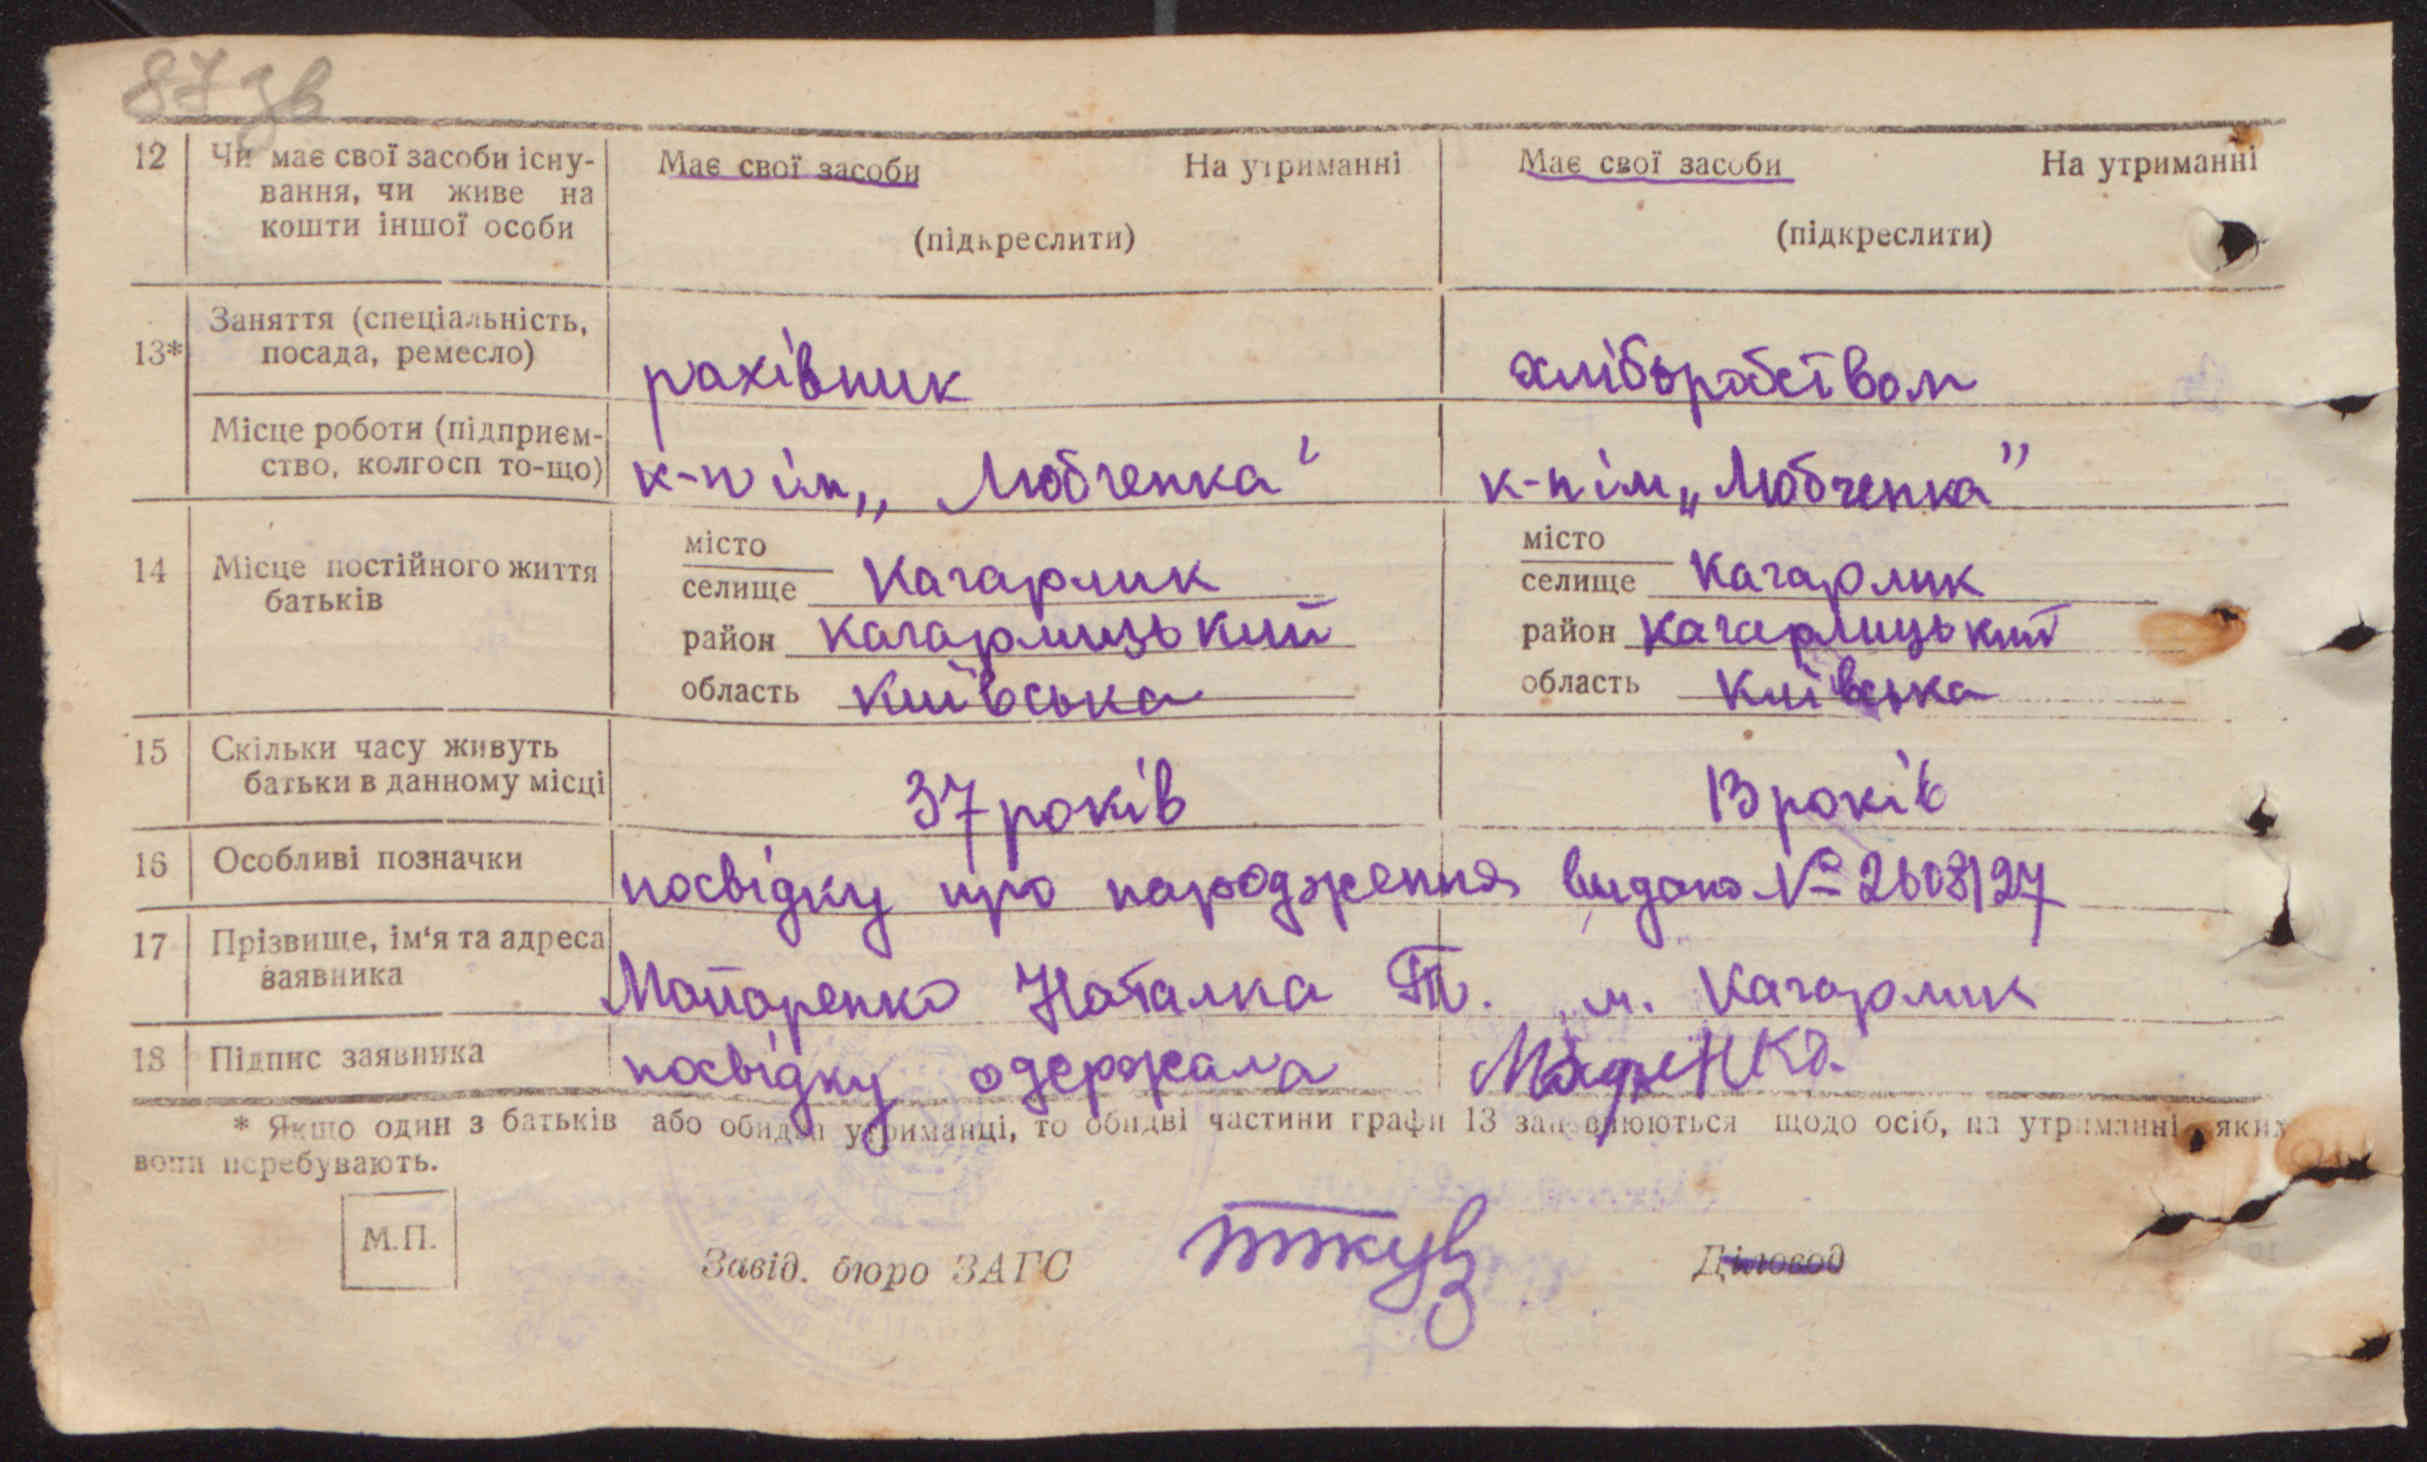 87 зв
12 Чи має свої засоби існу- Має свої засоби На утриманні Має свої засоби На утриманні
вання, чи живе на
кошти іншої особи (підкреслити) (підкреслити)
Заняття (спеціальність,
13* посада, ремесло) рахівник хліборобством
Місце роботи (підприєм-
ство, колгосп то-що) к-п ім „Любченка" к-п ім „Любченка"
місто місто
14 Місце постійного життя селище Кагарлик селище Кагарлик
батьків
район Кагарлицький район Кагарлицький
область Київська область Київська
15 Скільки часу живуть
батьки в данному місці 37 років 13 років
16 Особливі позначки посвідку про народження видано № 2608/27
17 Прізвище, ім'я та адреса
заявника Наталка Т. м. Кагарлик
18 Підпис заявника посвідку одержала
* Якщо один з батьків або обидва утриманці, то обидві частини графи 13 заповнюються щодо осіб, на утриманні яких
вони перебувають.
М.П.
Завід. бюро ЗАГС Діловод